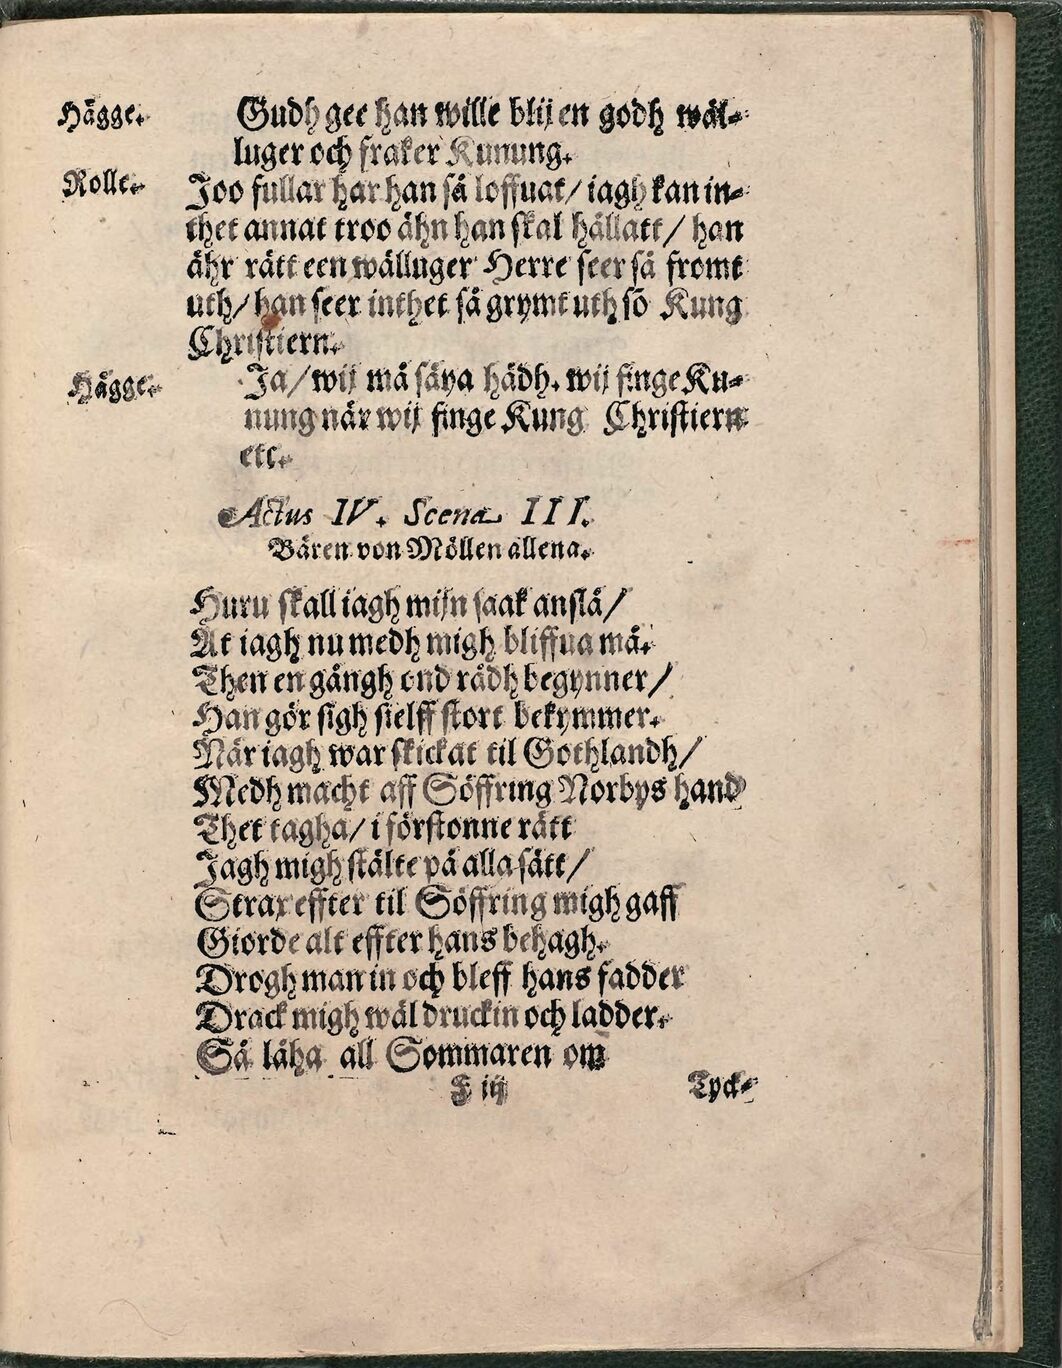 Hägge. Gudh gee han wille blij en godh wäl-
luger och fraker Kunung.
Rolle. Joo fullar har han så loffuat/ iagh kan in-
thet annat troo ähn han skal hållatt/ han
ähr rätt een wälluger Herre seer så fromt
uth/ han seer inthet så grymt uth sö Kung
Christiern.
Hägge. Ja/ wij må säya hädh. wij finge Ku-
nung när wij finge Kung Christiern
etc.
Actus IV. Scena III.
Bären von Möllen allena.
Huru skall iagh mijn saak anslå/
At iagh nu medh migh bliffua må.
Then en gångh ond rådh begynner/
Han gör sigh sielff stort bekymmer.
När iagh war skickat til Gothlandh/
Medh macht aff Söffring Norbys hand
Thet tagha/ i förstonne rätt
Jagh migh stälte på alla sätt/
Strax effter til Söffring migh gaff
Giorde alt effter hans behagh.
Drogh man in och bleff hans fadder
Drack migh wäl druckin och ladder.
Så låha all Sommaren om
F iij Tyck-